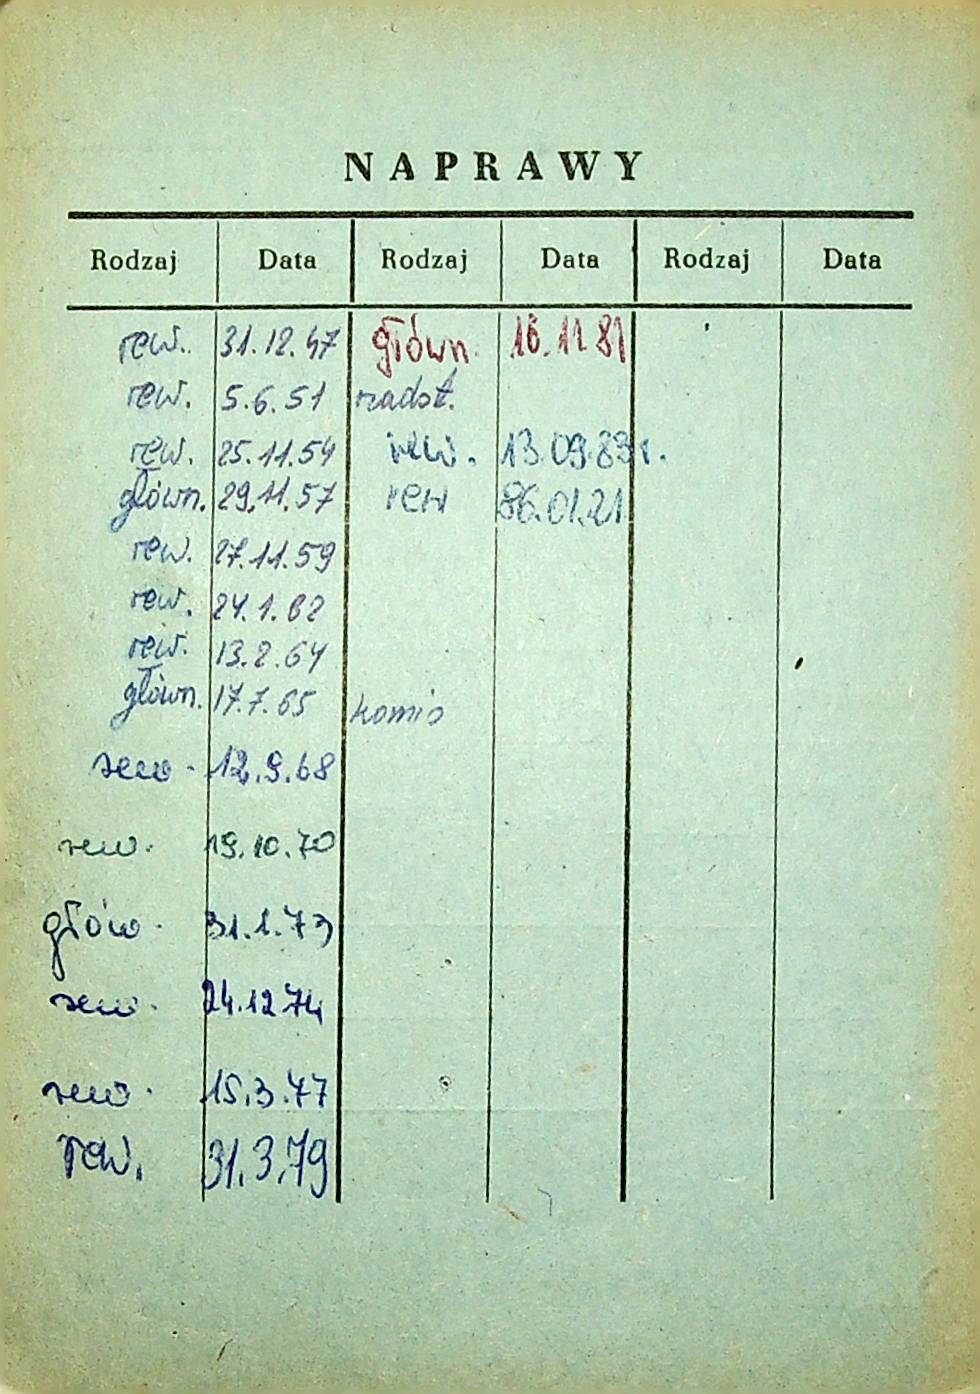 NAPRAWY
Rodzaj Data Rodzaj Data Rodzaj Data
rew. 31.12.47 główn. 16.11.81
rew. 5.6.51 nadst.
rew. 25.11.54 rew. 13.09.83r.
główn. 29.11.57 rew 86.01.21
rew. 27.11.59
rew. 24.1.62
rew. 13.2.64
główn. 17.7.65 komis
rew. 12.9.68
rew. 19.10.70
głów. 31.1.73
rew. 24.12.74
rew. 15.3.77
rew. 31.3.79